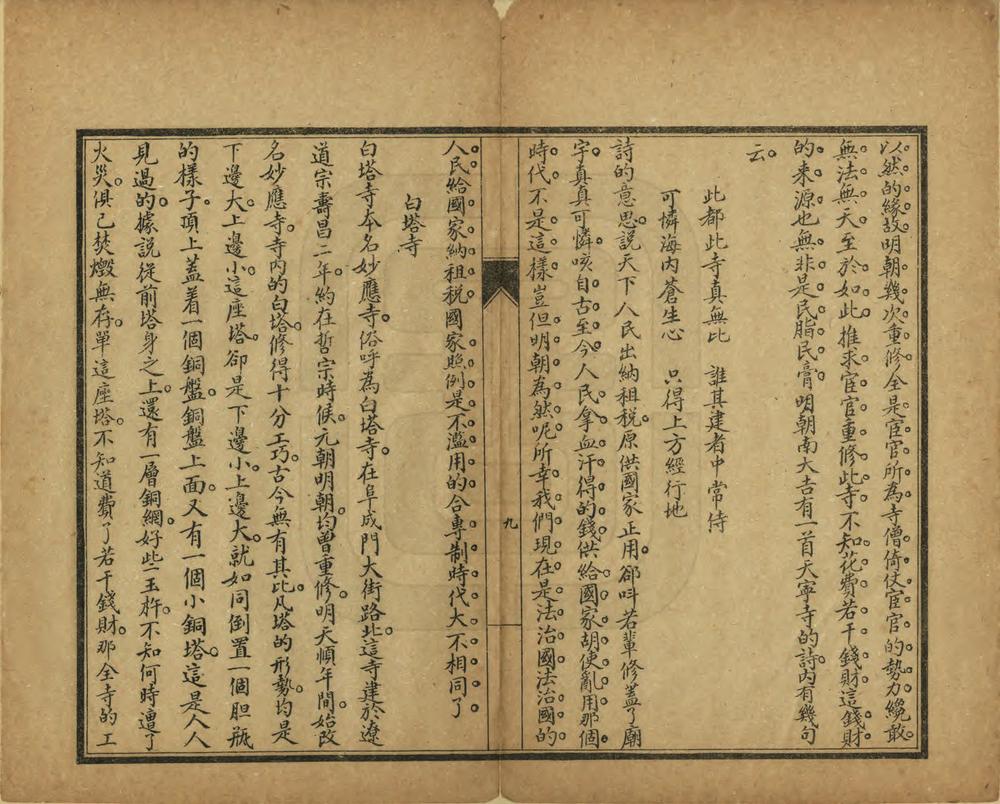 以然的緣故。明朝幾次重修。全是宦官所為。寺僧倚仗宦官的勢力。纔敢
無法無天。至於如此。推求宦官重修此寺。不知花費若干錢財。這錢財
的來源也。無非是民脂民膏。明朝南大吉有一首天寧寺的詩。內有幾句
云。
此都此寺真無比　誰其建者中常侍
可憐海內蒼生心　只得上方經行地
詩的意思。說天下人民出納租稅。原供國家正用。卻叫若輩修蓋了廟
宇。真真可憐。咳。自古至今。人民拿血汗得的錢。供給國家胡使亂用。那個
時代不是這樣。豈但明朝為然呢。所幸我們現在是法治國。法治國的
九
人民。給國家納租稅。國家照例是不濫用的。合專制時代大不相同了。
白塔寺
白塔寺本名妙應寺。俗呼為白塔寺。在阜成門大街路北。這寺建於遼
道宗壽昌二年。約在哲宗時候。元朝明朝。均曾重修。明天順年間。始改
名妙應寺。寺內的白塔。修得十分工巧。古今無有其比。凡塔的形勢。均是
下邊大。上邊小。這座塔。卻是下邊小。上邊大。就如同倒置一個胆瓶
的樣子。頂上蓋着一個銅盤。銅盤上面。又有一個小銅塔。這是人人
見過的。據說從前塔身之上。還有一層銅網。好些玉杵。不知何時遭了
火災。俱已焚燬無存。單這座塔。不知道費了若干錢財。那全寺的工